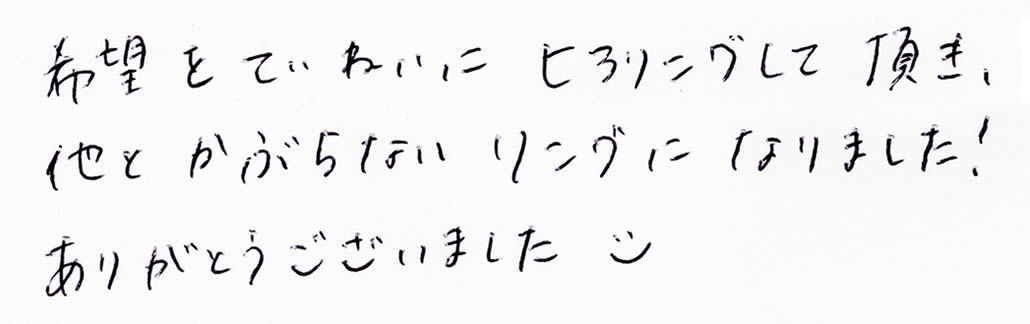 希望をていねいにヒアリングして頂き、
他とかぶらないリングになりました!
ありがとうございました